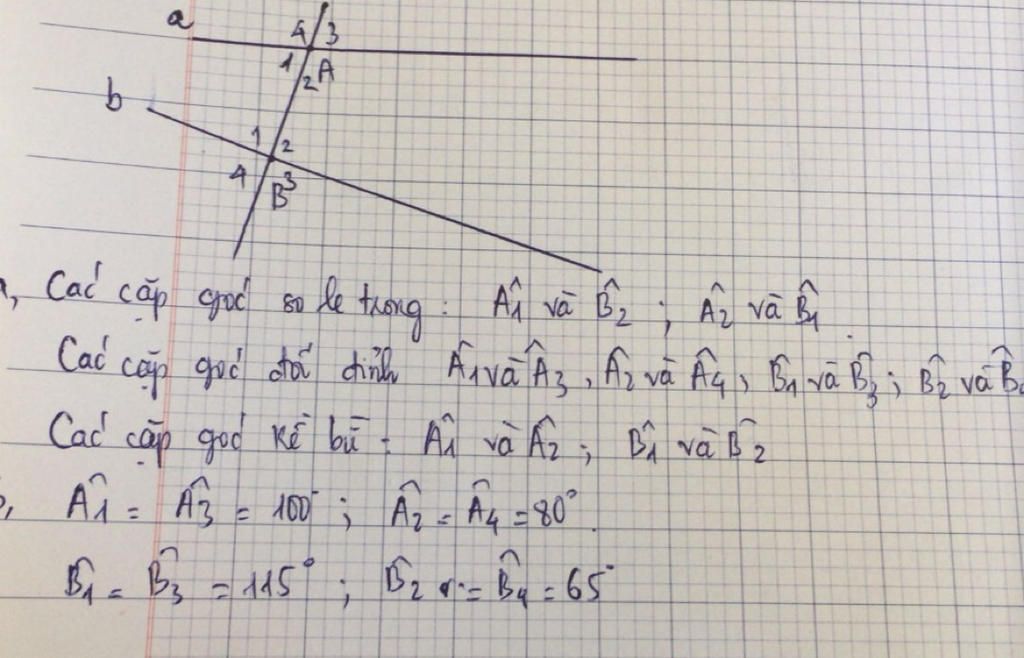 a
4 3
1 2 A
b
1 2
4 3
B
a, Các cặp góc so le trong : Â1 và B̂2 ; Â2 và B̂1 .
Các cặp góc đối đỉnh Â1 và Â3 , Â2 và Â4 , B̂1 và B̂3 ; B̂2 và B̂4
Các cặp góc kề bù : Â1 và Â2 ; B̂1 và B̂2
b, Â1 = Â3 = 100° ; Â2 = Â4 = 80° .
B̂1 = B̂3 = 115° ; B̂2 = B̂4 = 65°